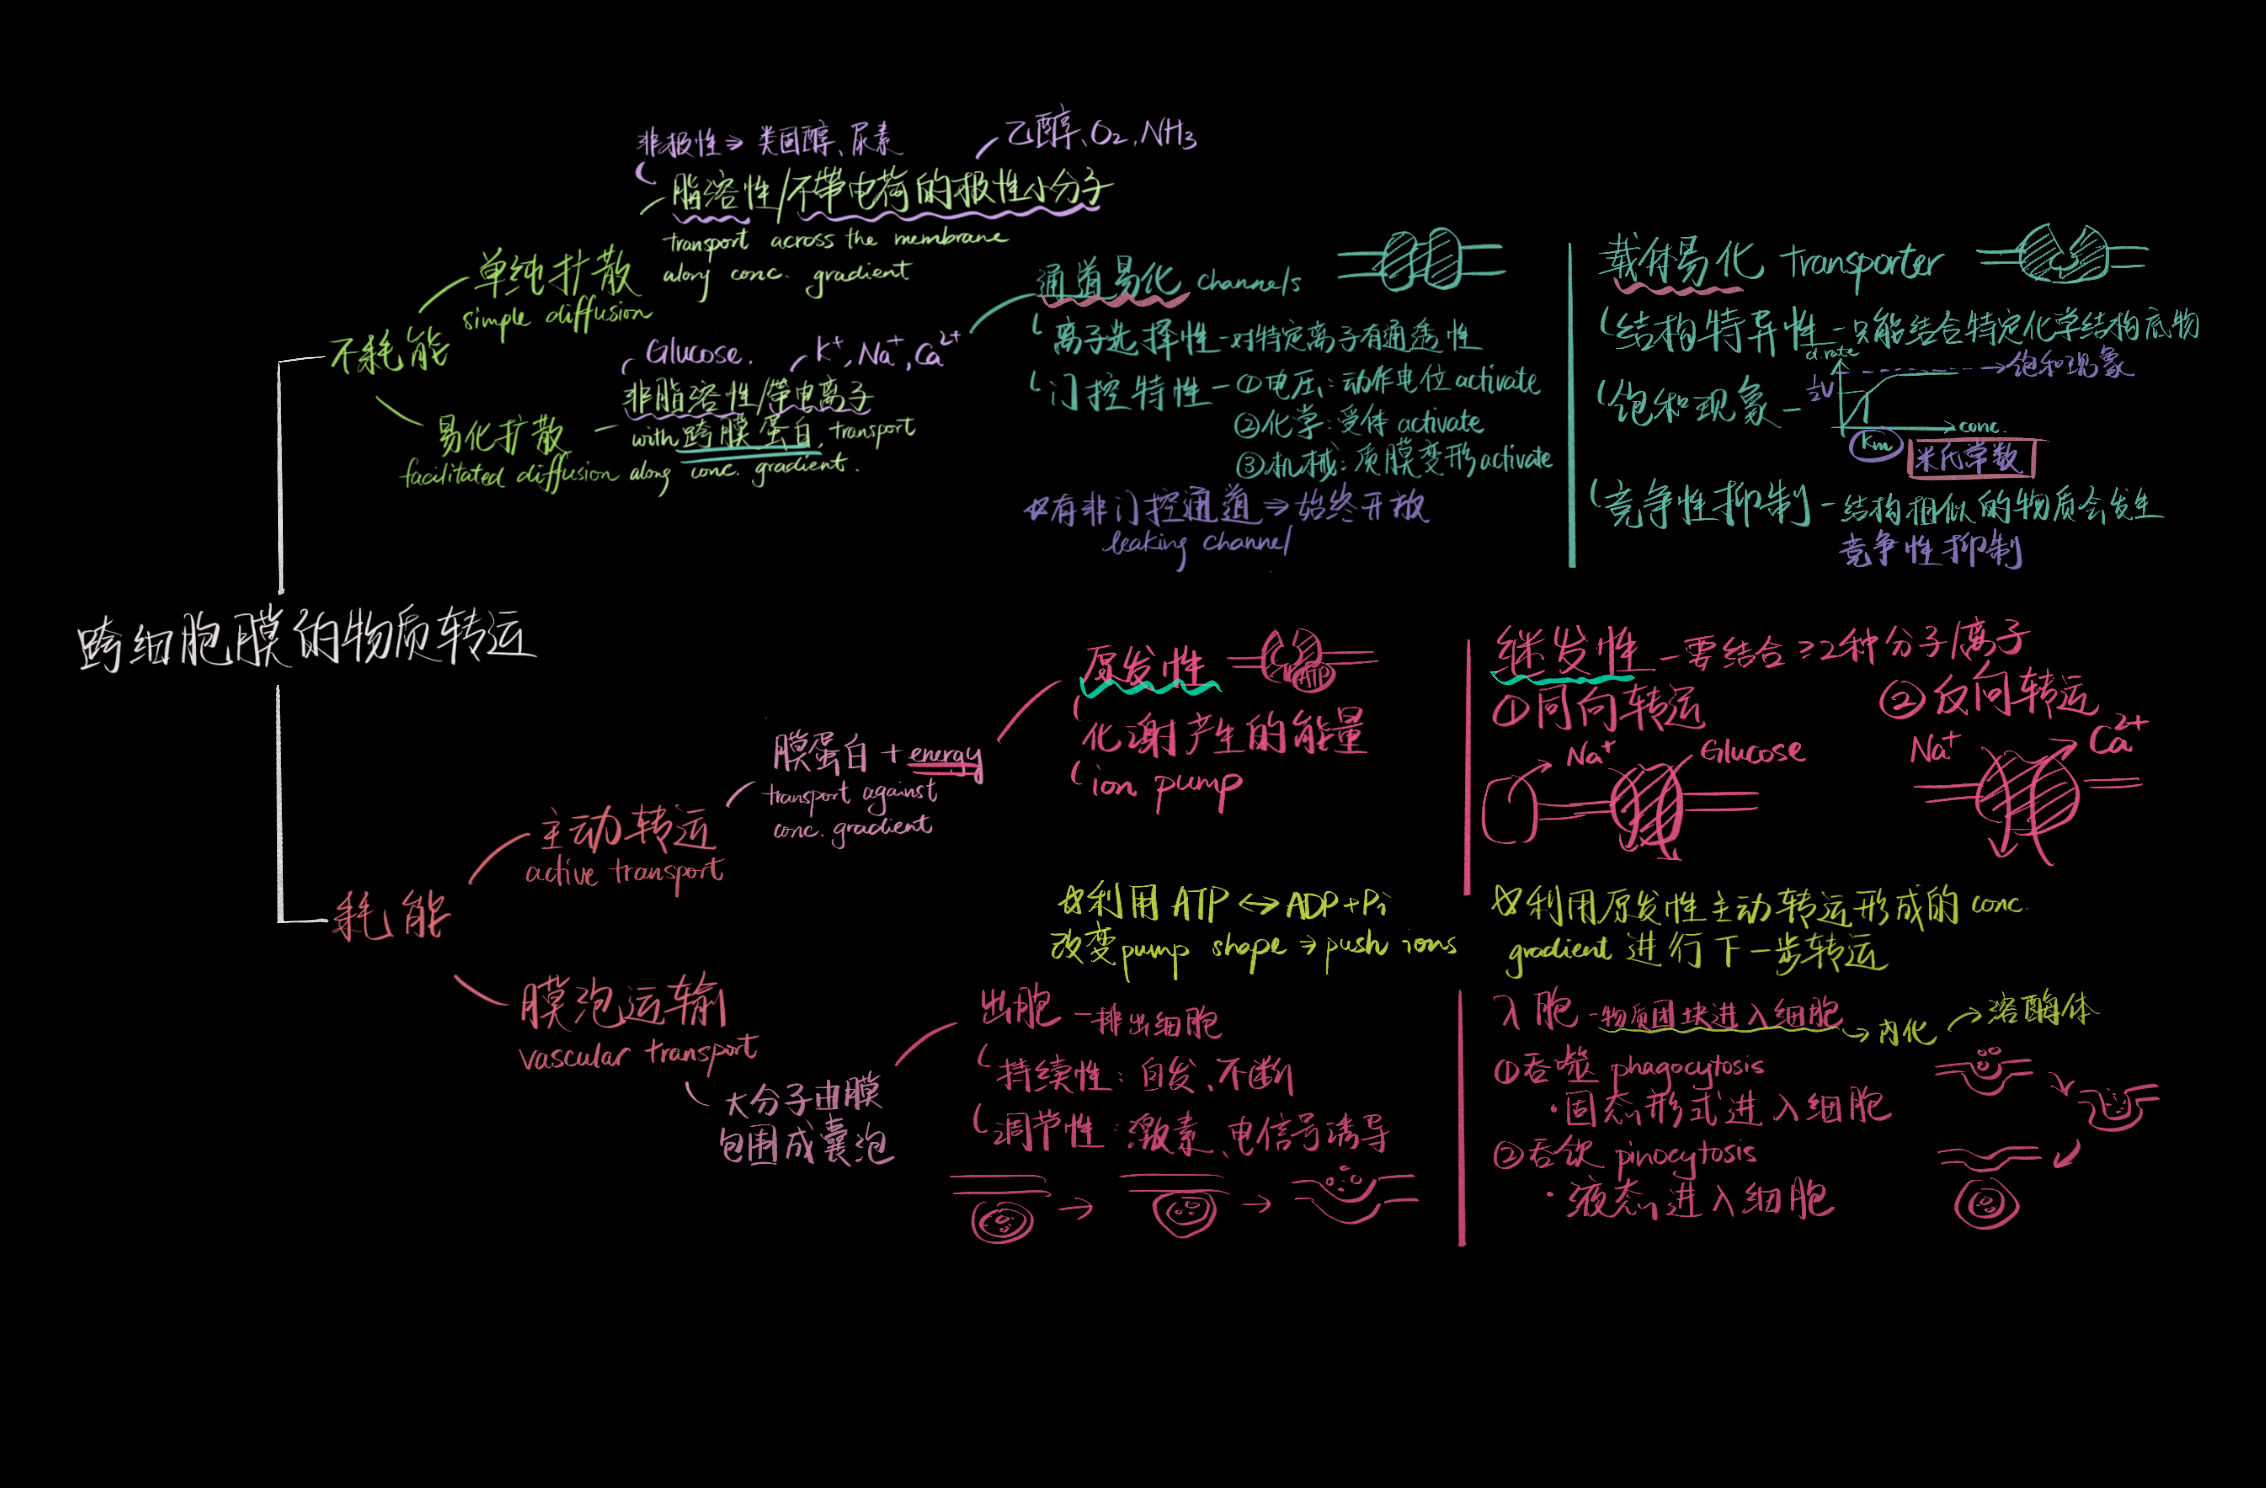 跨细胞膜的物质转运
不耗能
单纯扩散
simple diffusion
非极性⇒类固醇、尿素
乙醇、O₂,NH₃
脂溶性/不带电荷的极性小分子
transport across the membrane
along conc. gradient
易化扩散
facilitated diffusion
Glucose.
K⁺, Na⁺, Ca²⁺
非脂溶性/带电离子
with 跨膜蛋白, transport
along conc. gradient.
通道易化 channels
离子选择性-对特定离子有通透性
门控特性-①电压:动作电位activate
②化学:受体 activate
③机械:质膜变形activate
☆有非门控通道⇒始终开放
leaking channel
载体易化 transporter
结构特异性-只能结合特定化学结构底物
饱和现象-
d.rate
½V
→饱和现象
conc.
Km
米氏常数
竞争性抑制-结构相似的物质会发生
竞争性抑制
耗能
主动转运
active transport
膜蛋白+energy
transport against
conc. gradient
原发性
ATP
代谢产生的能量
ion pump
☆利用 ATP↔ADP+Pi
改变pump shape→push ions
继发性-要结合≥2种分子/离子
①同向转运
Na⁺
Glucose
②反向转运
Na⁺
Ca²⁺
☆利用原发性主动转运形成的 conc.
gradient 进行下一步转运
膜泡运输
vascular transport
大分子由膜
包围成囊泡
出胞-排出细胞
持续性:自发、不断
调节性:激素、电信号诱导
入胞-物质团块进入细胞→内化→溶酶体
①吞噬 phagocytosis
·固态形式进入细胞
②吞饮 pinocytosis
·液态进入细胞